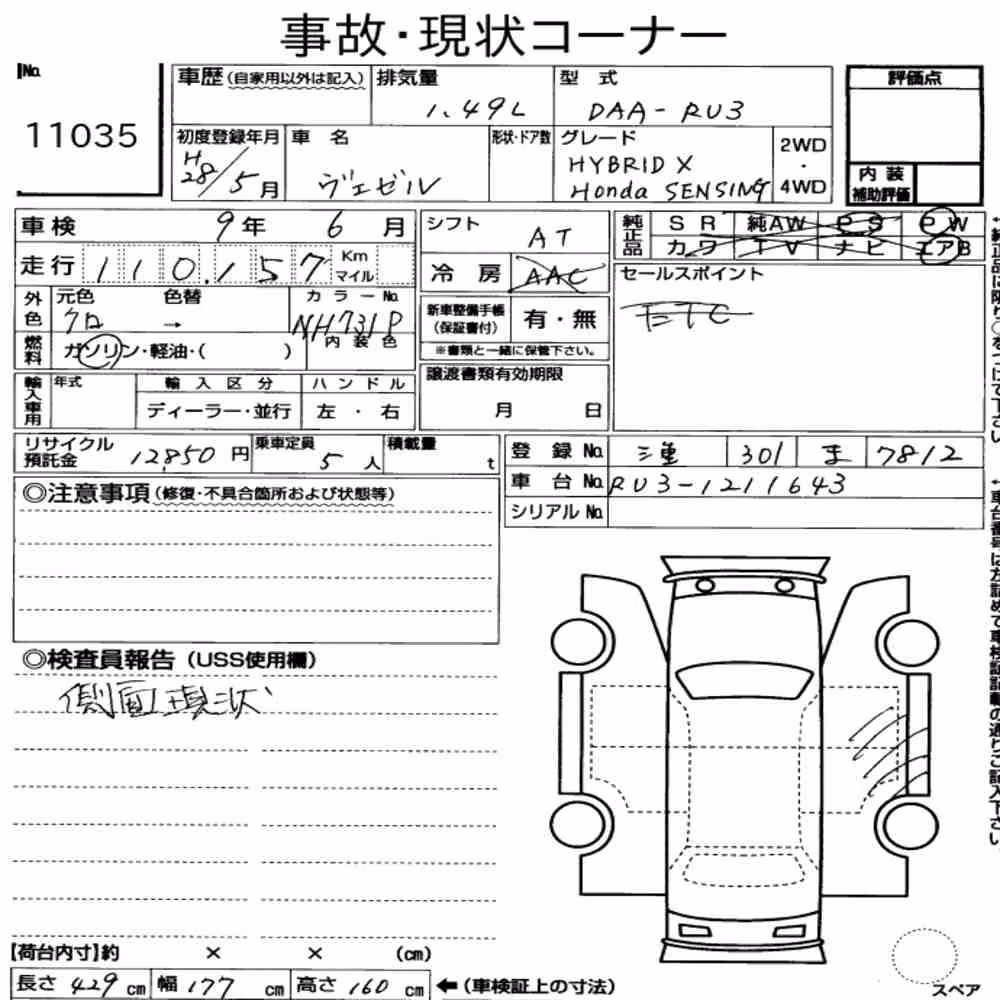 事故・現状コーナー
No.
11035
車歴(自家用以外は記入)
排気量
1.49L
型式
DAA-RU3
評価点
初度登録年月
H28/5月
車名
ヴェゼル
形状・ドア数
グレード
HYBRID X
Honda SENSING
2WD
・
4WD
内装
補助評価
車検 9年 6月
シフト
AT
純正品
SR 純AW PS PW
カワ TV ナビ エアB
走行 110,157 Km マイル
冷房 AAC
セールスポイント
ETC
外色
元色 色替 カラーNo.
クロ → NH731P
内装色
燃料
ガソリン・軽油・( )
新車整備手帳
(保証書付)
有・無
※書類と一緒に保管下さい。
輸入車用
年式
輸入区分
ハンドル
ディーラー・並行
左・右
譲渡書類有効期限
月 日
リサイクル
預託金
12,850円
乗車定員
5人
積載量
t
登録No. 三重 301 ま 7812
車台No. RU3-1211643
シリアルNo.
◎注意事項(修復・不具合箇所および状態等)
◎検査員報告(USS使用欄)
側面現状
【荷台内寸】約 × × (cm)
長さ 429 cm 幅 177 cm 高さ 160 cm ←(車検証上の寸法)
スペア
←純正品に限り○をつけて下さい
←車台番号は左詰めで車検証記載の通りご記入下さい